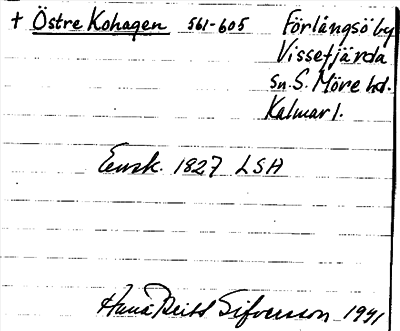 + Östre Kohagen 561-605 Förlångsö by
Vissefjärda
sn. S. Möre hd.
Kalmar l.
Ensk. 1827 LSA
Sifversson 1991